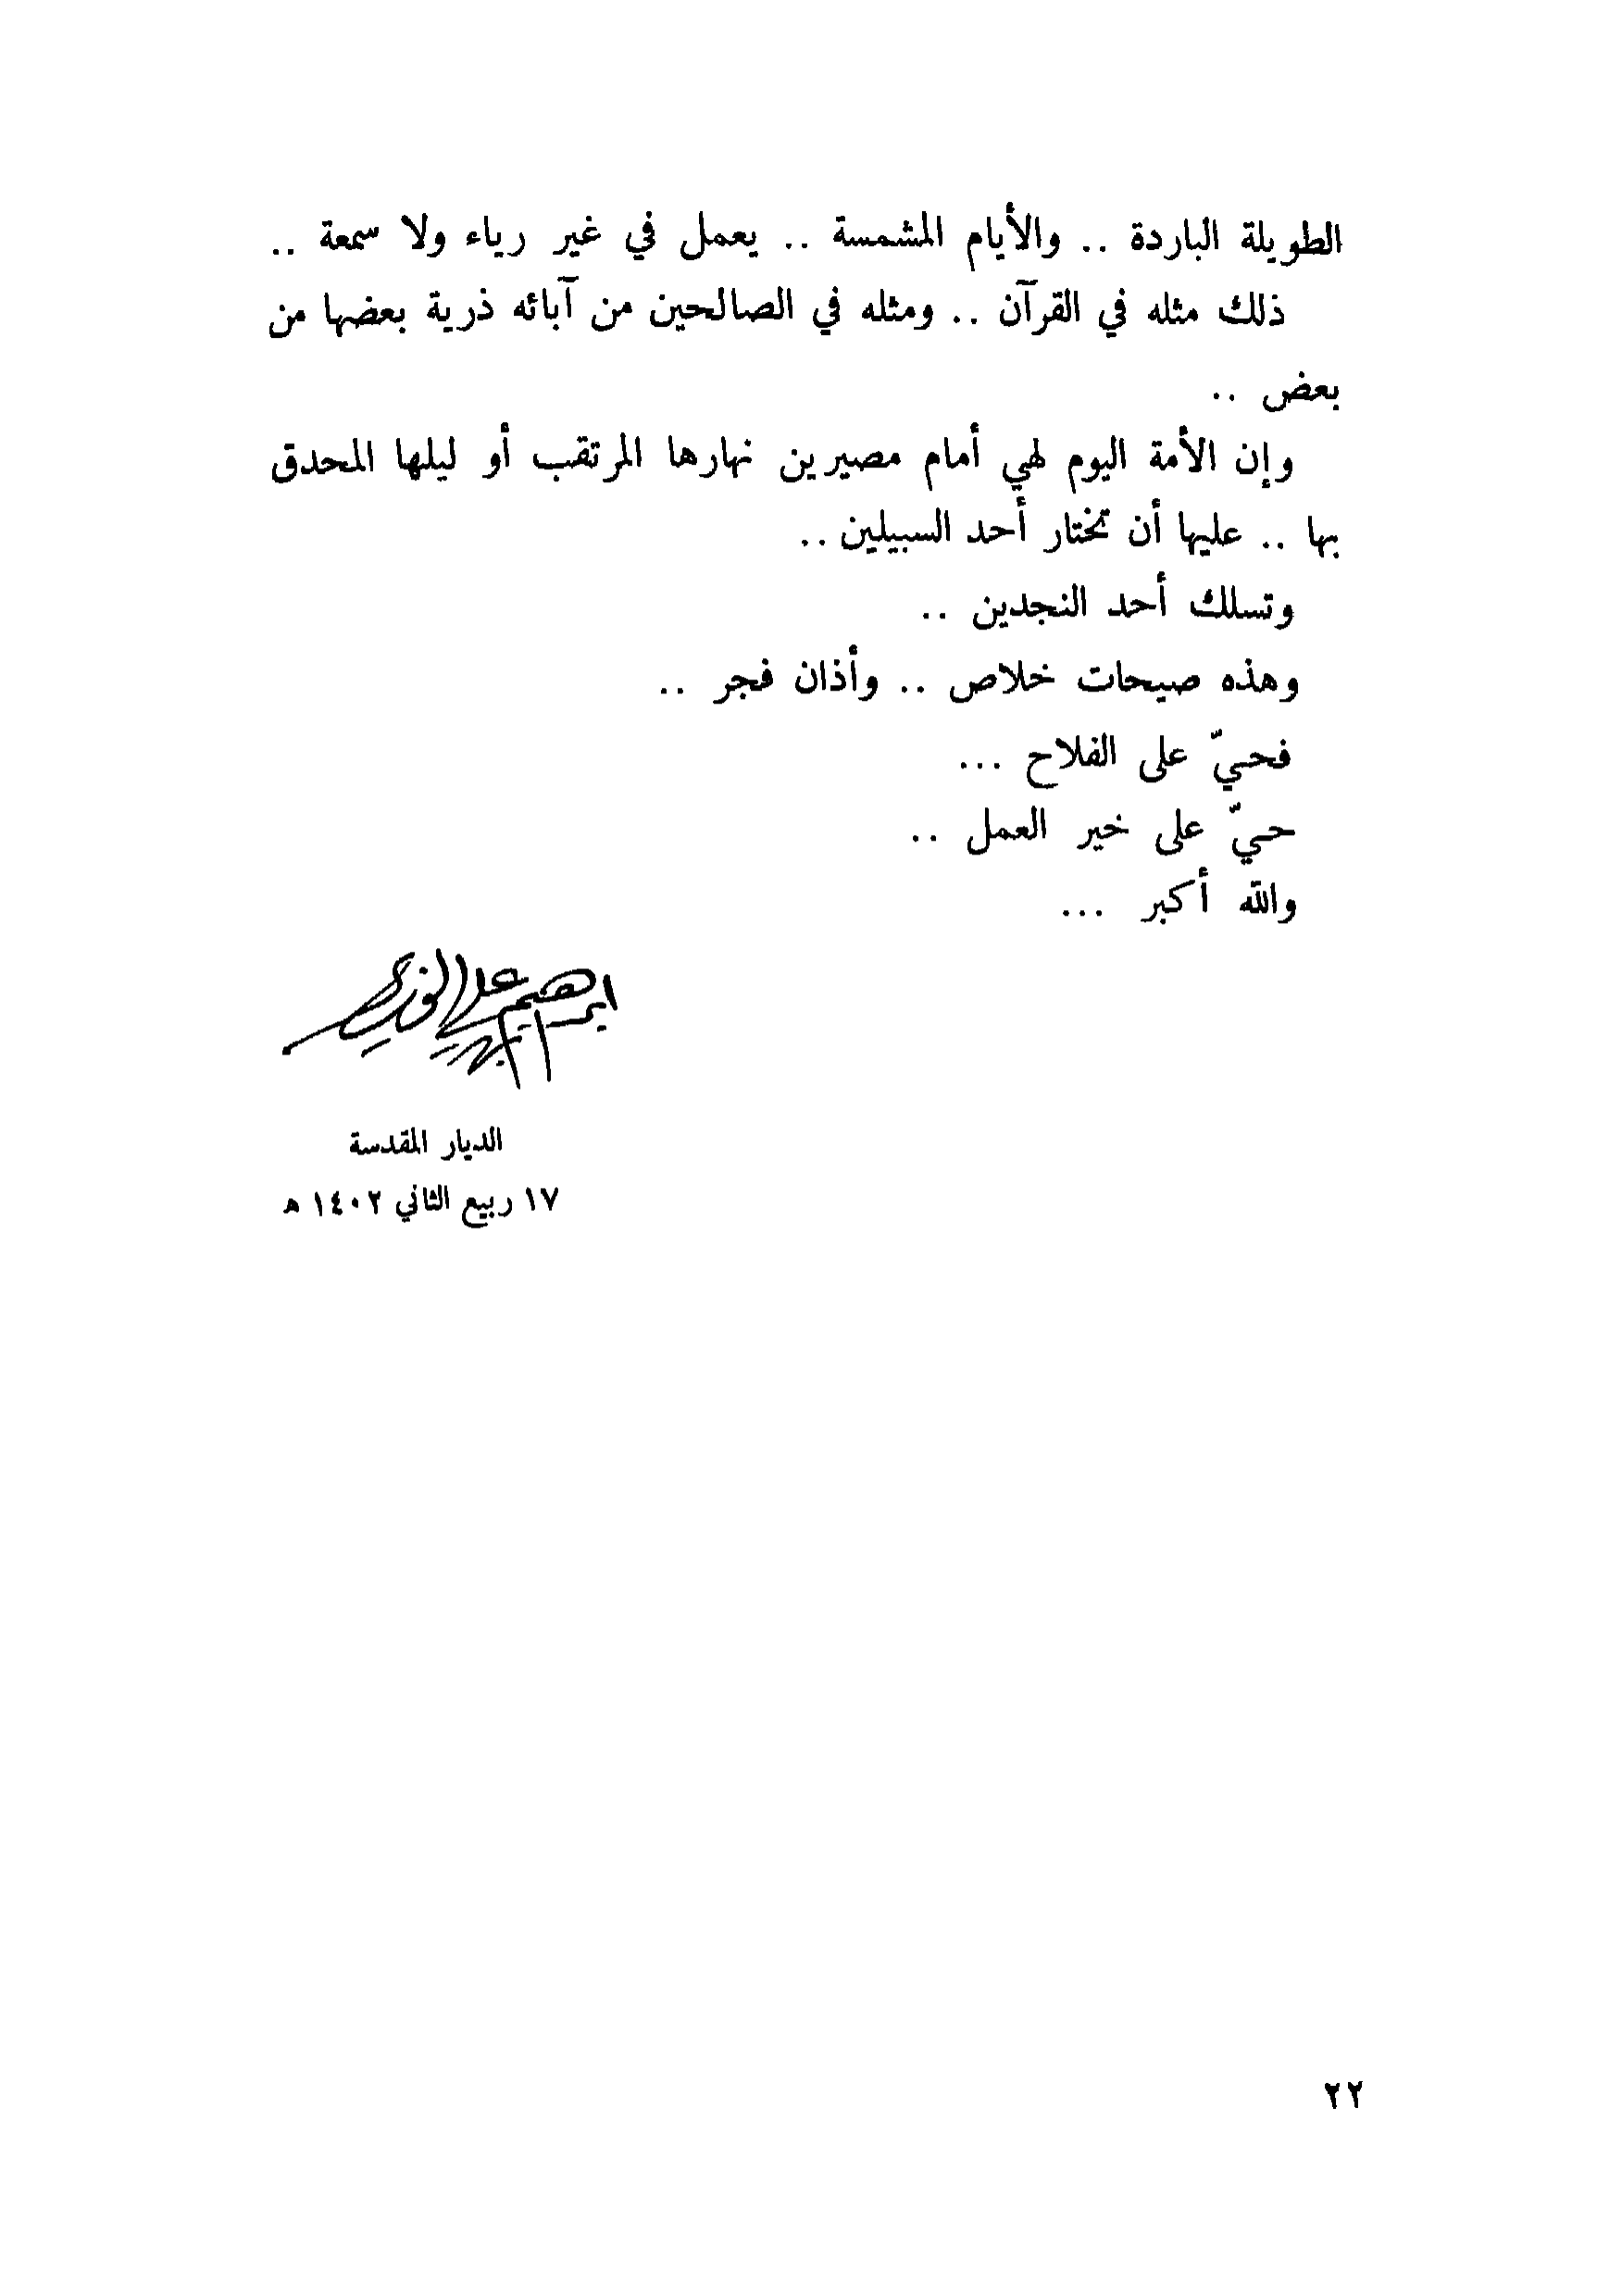 الطويلة الباردة .. والأيام المشمسة .. يعمل في غير رياء ولا سمعة ..
ذلك مثله في القرآن .. ومثله في الصالحين من آبائه ذرية بعضها من
بعض ..
وإن الأمة اليوم لهي أمام مصيرين نهارها المرتقب أو ليلها المحدق
بها .. عليها أن تختار أحد السبيلين ..
وتسلك أحد النجدين ..
وهذه صيحات خلاص .. وأذان فجر ..
فحيّ على الفلاح ...
حيّ على خير العمل ..
والله أكبر ...
ابراهيم علي الوزير
الديار المقدسة
١٧ ربيع الثاني ١٤٠٢ ه
٢٢